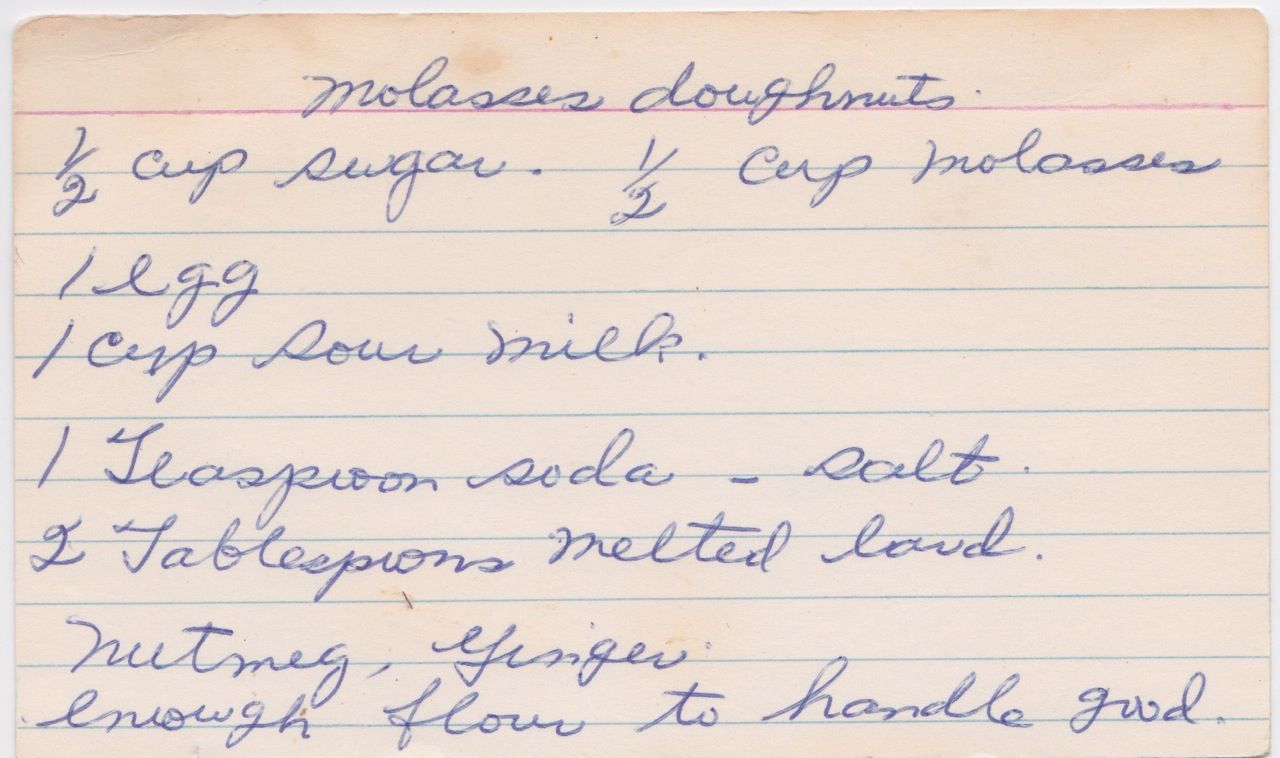 Molasses doughnuts.
1/2 cup sugar. 1/2 Cup Molasses
1 egg
1 Cup Sour Milk.
1 Teaspoon soda - salt.
2 Tablespoons Melted lard.
Nutmeg, Ginger.
Enough flour to handle good.